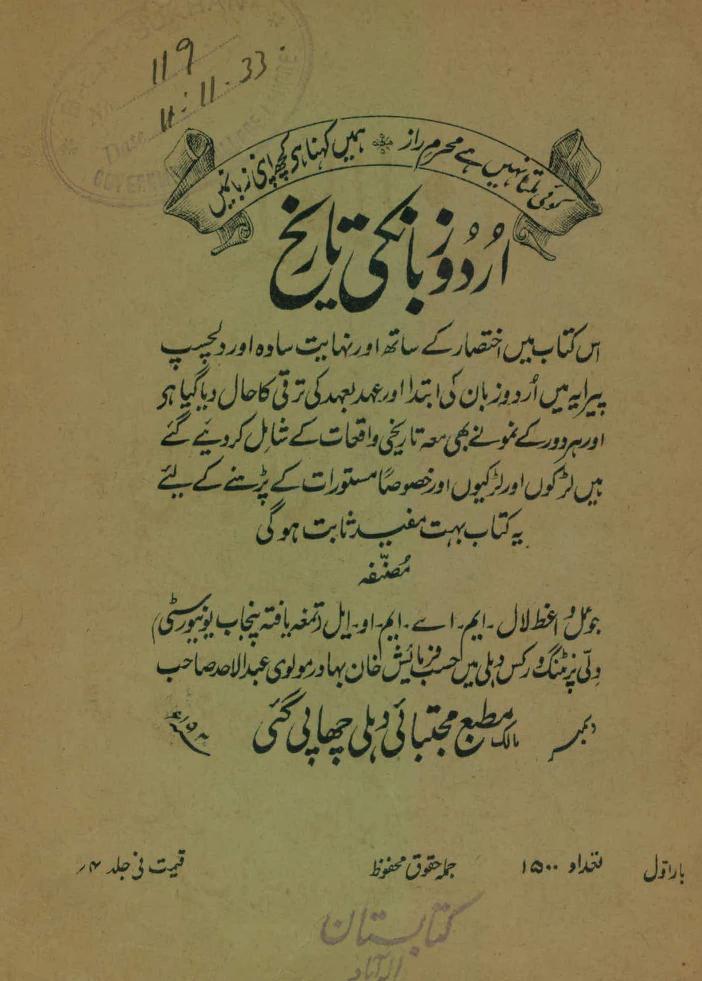 119
11-11-33
کوئی تمنا نہیں ہے محرم راز ہمیں کہنا ہی کچھ اپنی زبانمیں
اُردو زبانکی تاریخ
اس کتاب میں اختصار کے ساتھ اور نہایت سادہ اور دلچسپ
پیرایہ میں اُردو زبان کی ابتدا اور عہد بعہد کی ترقی کا حال دیا گیا ہی
اور ہر دور کے نمونے بھی معہ تاریخی واقعات کے شامل کر دیئے گئے
ہیں لڑکوں اور لڑکیوں اور خصوصاً مستورات کے پڑہنے کے لئے
یہ کتاب بہت مفید ثابت ہوگی
مصنّفہ
جوئل واعظ لال - ایم - اے - ایم - او - ایل (تمغہ یافتہ پنجاب یونیورسٹی)
دلی پرنٹنگ ورکس دہلی میں حسب فرمائیش خان بہادر مولوی عبدالاحد صاحب
دسمبر مالک مطبع مجتبائی دہلی چھاپی گئی
بار اوّل تعداد ۱۵۰۰ جملہ حقوق محفوظ قیمت فی جلد ۴؍
کتابستان
الہ آباد